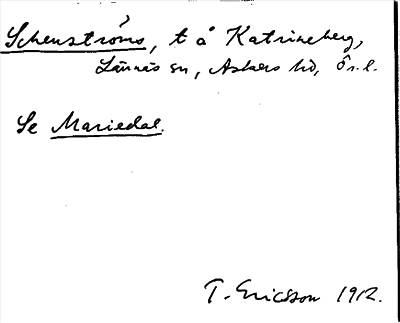 Schenströms, t å Katrineberg,
Lännäs sn, Askers hd, Ör. l.
Se Mariedal.
T. Ericsson 1912.